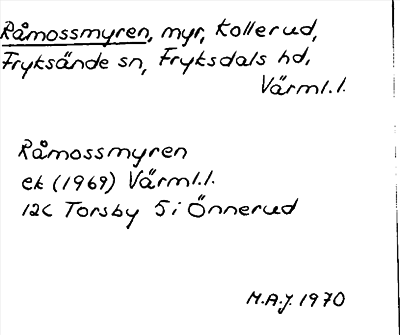 Råmossmyren, myr, Kollerud,
Fryksände sn, Fryksdals hd,
Värml.l.
Råmossmyren
ek (1969) Värml.l.
12C Torsby 5 i Önnerud
M.A.J. 1970